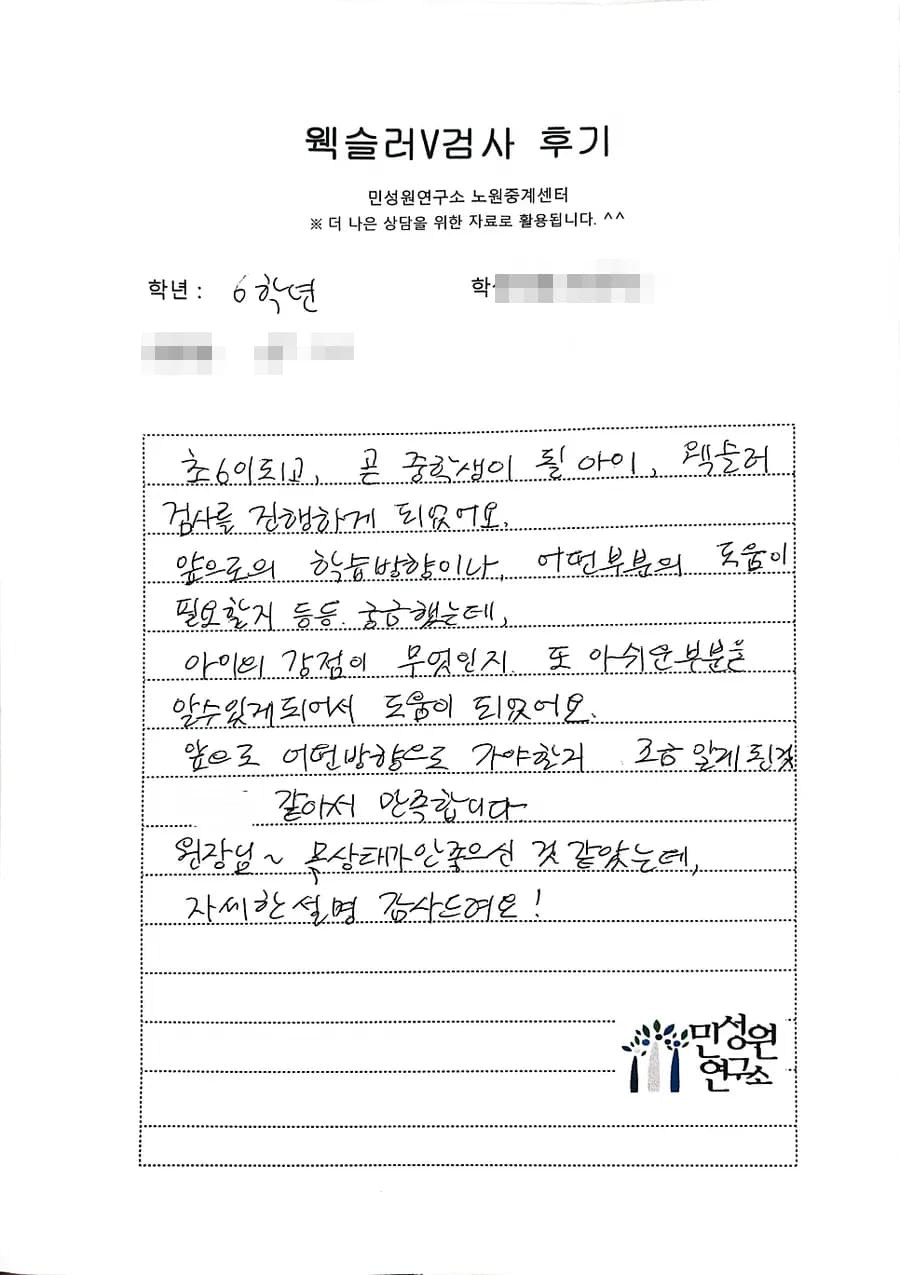 웩슬러V검사 후기
민성원연구소 노원중계센터
※ 더 나은 상담을 위한 자료로 활용됩니다. ^^
학년 : 6학년 학
초6이되고, 곧 중학생이 될 아이, 웩슬러
검사를 진행하게 되었어요.
앞으로의 학습방향이나, 어떤부분의 도움이
필요할지 등등. 궁금했는데,
아이의 강점이 무엇인지. 또 아쉬운부분을
알수있게되어서 도움이 되었어요.
앞으로 어떤방향으로 가야할지 조금 알게된것
같아서 만족합니다
원장님~ 목상태가안좋으신 것 같았는데,
자세한설명 감사드려요!
민성원
연구소